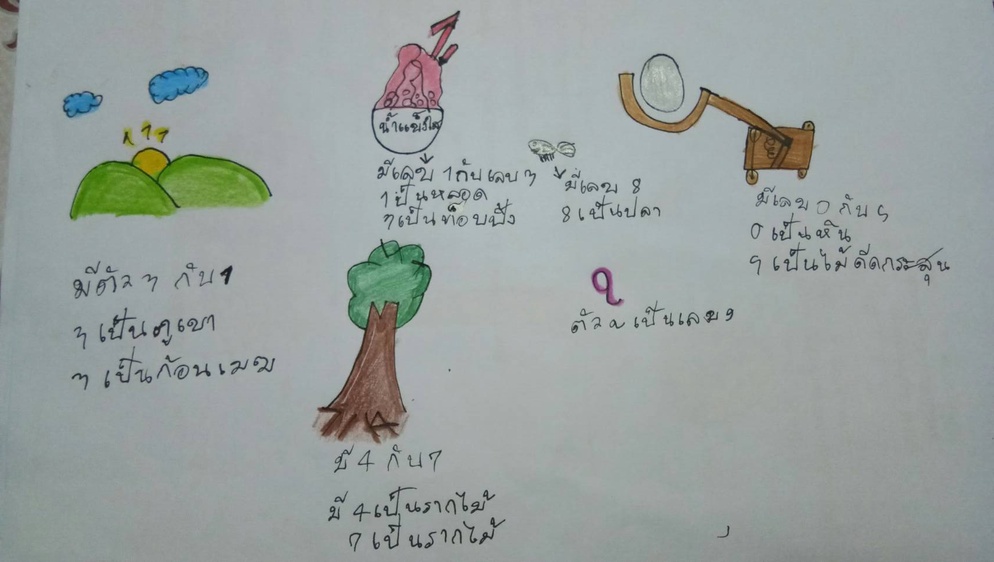 น้ำแข็งใส
มีเลข 1 กับ เลข 7
1 เป็นหลอด
7 เป็นท็อบปิ้ง
มีเลข 8
8 เป็นปลา
มีเลข 0 กับ 9
0 เป็นหิน
9 เป็นไม้ดีดกระสุน
มีตัว ๆ กับ 1
ๆ เป็นภูเขา
ๆ เป็นก้อนเมฆ
ตัว เป็นเลข 9
มี 4 กับ 7
มี 4 เป็นรากไม้
7 เป็นรากไม้